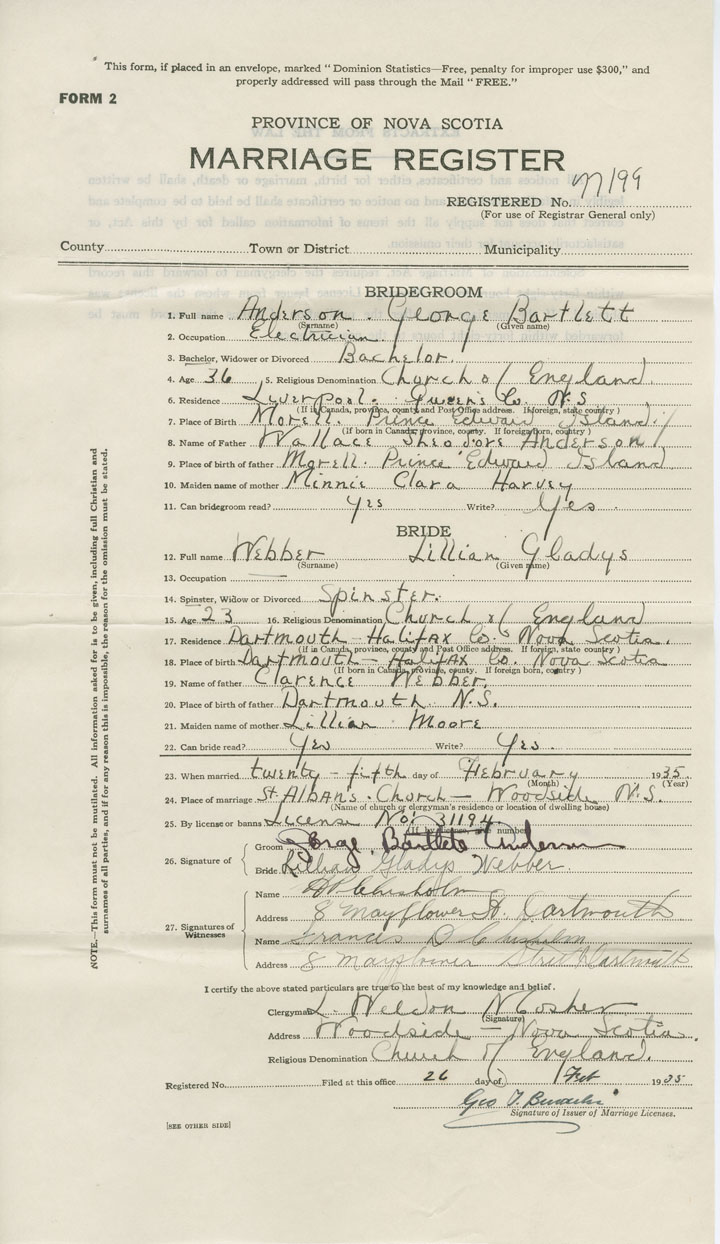 This form, if placed in an envelope, marked "Dominion Statistics—Free, penalty for improper use $300," and
properly addressed will pass through the Mail "FREE."
FORM 2
PROVINCE OF NOVA SCOTIA
MARRIAGE REGISTER
REGISTERED No. 199
(For use of Registrar General only)
County Town or District Municipality
BRIDEGROOM
1. Full name Anderson. George Bartlett
(Surname) (Given name)
2. Occupation Electrician.
3. Bachelor, Widower or Divorced Bachelor.
4. Age 36 5. Religious Denomination Church of England.
6. Residence Liverpool. Queen's Co. N.S
(If in Canada, province, county and Post Office address. If foreign, state country)
7. Place of Birth Morell. Prince Edward Island.
(If born in Canada, province, county. If foreign born, country)
8. Name of Father Wallace Theodore Anderson
9. Place of birth of father Morell. Prince Edward Island
10. Maiden name of mother Minnie Clara Harvey
11. Can bridegroom read? Yes Write? Yes
BRIDE
12. Full name Webber Lillian Gladys
(Surname) (Given name)
13. Occupation
14. Spinster, Widow or Divorced Spinster.
15. Age 23 16. Religious Denomination Church of England
17. Residence Dartmouth - Halifax Co. Nova Scotia.
(If in Canada, province, county and Post Office address. If foreign, state country)
18. Place of birth Dartmouth - Halifax Co. Nova Scotia
(If born in Canada, province, county. If foreign born, country)
19. Name of father Clarence Webber.
20. Place of birth of father Dartmouth N.S.
21. Maiden name of mother Lillian Moore
22. Can bride read? Yes Write? Yes.
23. When married twenty-fifth day of February 1935.
(Month) (Year)
24. Place of marriage St Alban's Church - Woodside N.S.
(Name of church or clergyman's residence or location of dwelling house)
25. By license or banns License No: 31194
(If by license, give number)
26. Signature of
Groom George Bartlett Anderson
Bride Lillian Gladys Webber.
27. Signatures of Witnesses
Name Chisholm
Address 8 Mayflower St. Dartmouth
Name Francis D Chisholm
Address 8 Mayflower Street Dartmouth
I certify the above stated particulars are true to the best of my knowledge and belief.
Clergyman L. Weldon Mosher
(Signature)
Address Woodside - Nova Scotia.
Religious Denomination Church of England.
Registered No. Filed at this office 26 day of Feb 1935
Geo T.
Signature of Issuer of Marriage Licenses.
[SEE OTHER SIDE]
NOTE.—This form must not be mutilated. All information asked for is to be given, including full Christian and
surnames of all parties, and if for any reason this is impossible, the reason for the omission must be stated.